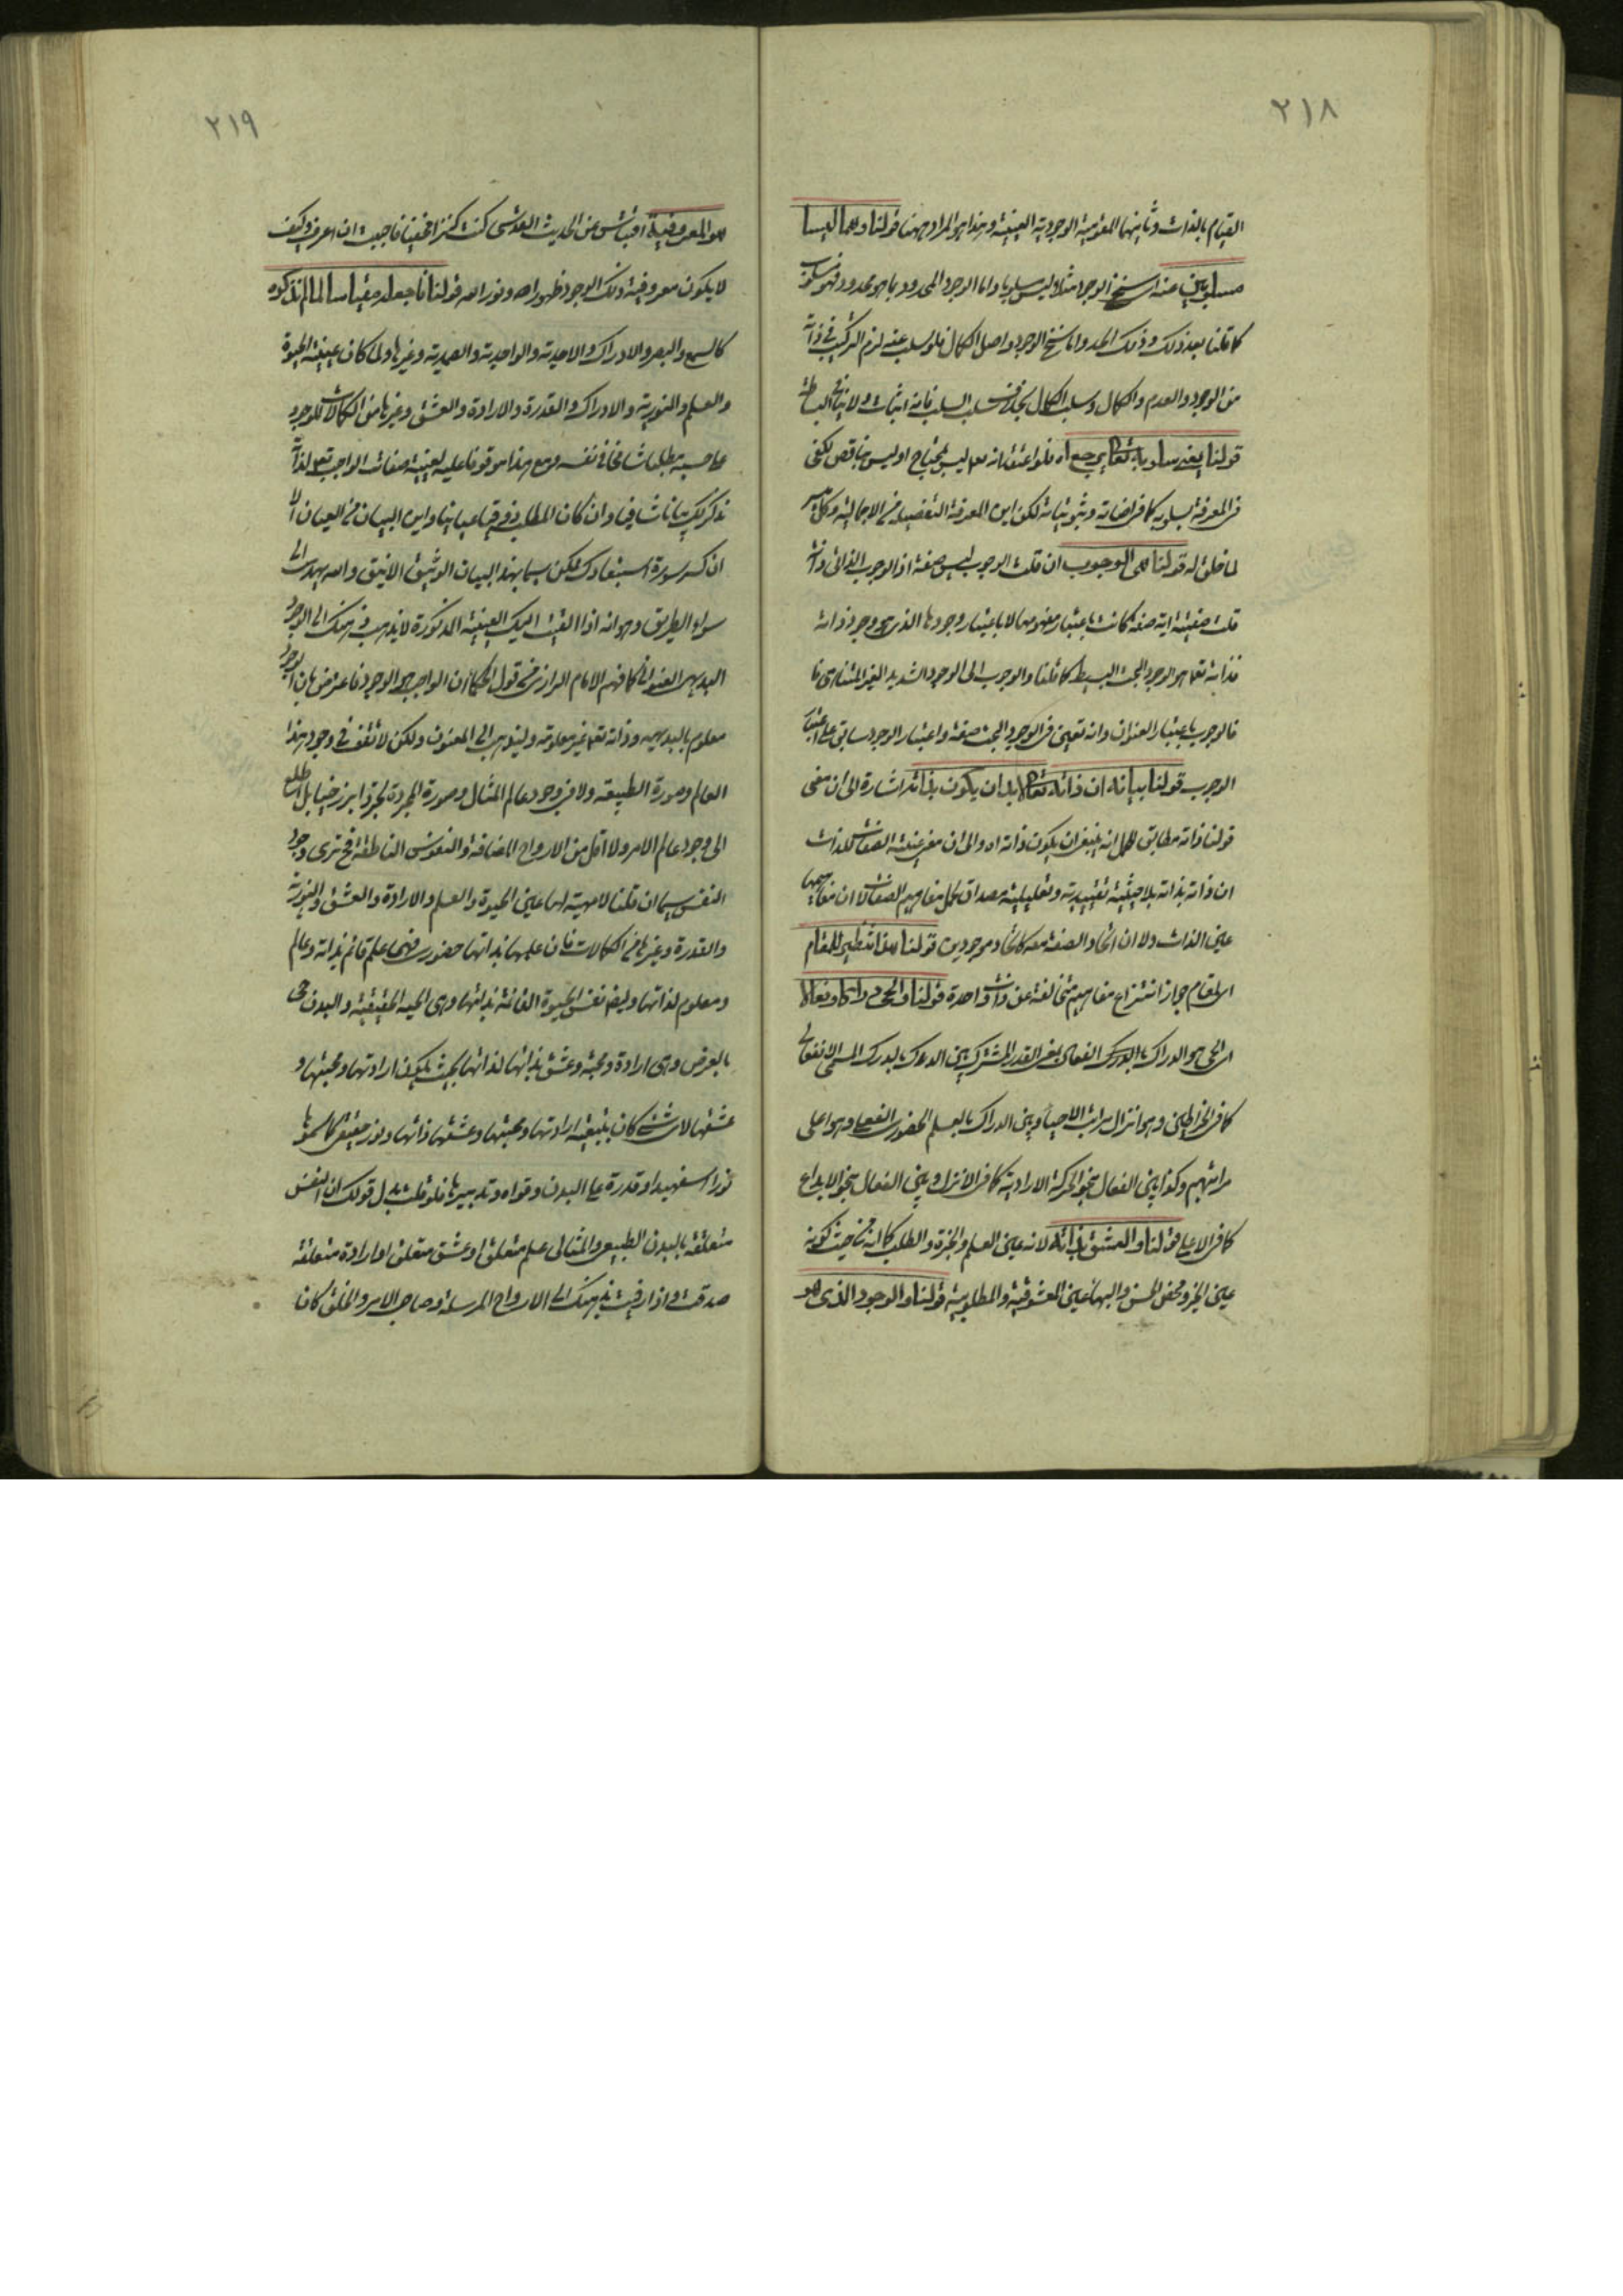 ٢١٨
القيام بالذات وثانيهما المقومية الوجودية العينية وهذا هو المراد ههنا قولنا وهما ليسا
مسلوبين عنه اى سنخ الوجود مثلا ليس سلوبا واما الوجود المحدود بما هو محدود فهو مسلوب
كما قلنا بعد ذلك وذلك الحد واما سنخ الوجود واصل الكمال فلو سلب عنه لزم التركيب فى ذاته
من الوجود والعدم والكمال وسلب الكمال بخلاف سلب السلب فانه اثبات ولا ينافى البساطة
قولنا يعنى سلوبه تعالى يرجع اه فلو اعتقد انه تع ليس بمحتاج او ليس بناقص لكفى
فى المعرفة بسلوبه كما فى اضافاته وثبوتياته لكن اين المعرفة التفصيلية من الاجمالية وكل ميسر
لما خلق له قولنا هى الوجوب ان قلت الوجوب ليس صفة اذ الوجوب الذاتى ذاته
قلت صفتيه اية صفة كانت باعتبار مفهومها لا باعتبار وجودها الذى هو وجود ذاته
فذاته تعالى هو الوجود البحت البسيط كما قلنا والوجوب الى الوجود الشديد الغير المتناهى
فالوجوب باعتبار العنوان وانه تعين فى الوجود البحت صفة واعتبار الوجود سابق على اعتبار
الوجوب قولنا بيانه ان ذاته تعالى لابد ان يكون بذاته اشارة الى ان معنى
قولنا ذاته مطابق للحمل انه ينبغى ان يكون ذاته اه والى ان معنى عينية الصفات للذات
ان ذاته بذاته بلا حيثية تقييدية وتعليلية مصداق لحمل مفاهيم الصفات لا ان مفاهيمها
عين الذات ولا ان اتحاد الصفة معه كاتحاد موجودين قولنا هذا تنظير للمقام
اى لمقام جواز انتزاع مفاهيم متخالفة عن ذات واحدة قولنا والحى دراكا وفعالا
اى الحى هو الدراك الفعال بمعنى القدر المشترك بين الدرك بالدرك اللمسى الانفعالى
كما فى الخراطين وهو انزل مراتب الاحياء وبين الدراك بالعلم الحضورى الفعلى وهو اعلى
مراتبهم وكذا بين الفعال بنحو الحركة الارادية كما فى الانزل وبين الفعال بنحو الابداع
كما فى الاعلى قولنا والعشق بذاته لانه عين العلم والخيرة والطلب كما انه من حيث كونه
عين الخير ومحض الحسن والبهاء عين المعشوقية والمطلوبية قولنا والوجود الذى هو
٢١٩
هو المعروفية اقتباس من الحديث القدسى كنت كنزا مخفيا فاحببت ان اعرف وكيف
لا يكون معروفية وذلك الوجود ظهور الله ونور الله قولنا فاجعله مقياسا لما لم نذكره
كالسمع والبصر والادراك والاحدية والواحدية والصمدية وغيرها ولما كان عينية الحيوة
والعلم والنورية والادراك والقدرة والارادة والعشق وغيرها من الكمالات للوجود
مطلبا شامخا فى نفسه ومع هذا موقوفا عليه لعينية صفات الواجب تعالى لذاته
نذكر لك بيانا شافيا وان كان المطلب عيانيا واين البيان من العيان الا
ان كسر سورة استبعادك ممكن سيما بهذا البيان الوثيق الانيق والله يهدى الى
سواء الطريق وهو انه اذا القيت اليك العينية المذكورة لا يذهب ذهنك الى الوجود
البديهى العنوانى كما فهم الامام الرازى من قول الحكماء ان الواجب هو الوجود فاعترض بان الوجود
معلوم بالبديهة وذاته تعالى غير معلومة وليذهب الى المعنون ولكن لا تقف فى وجود هذا
العالم وصورة الطبيعة ولا فى وجود عالم المثال وصورة المجردة بل اطلع
الى وجود عالم الامر ولا اقل من الارواح المضافة والنفوس الناطقة فح ترى وجود
النفس سيما ان قلنا لا مهية لها عين الحيوة والعلم والارادة والعشق والنورية
والقدرة وغيرها من الكمالات فان علمها بذاتها حضورى فهى علم قائم بذاته وعالم
ومعلوم لذاتها وايض نفس الحيوة القائمة بذاتها وهى الحية الحقيقية والبدن حى
بالعرض وهى ارادة ومحبة وعشق بذاتها لذاتها بحيث يكون ارادتها ومحبتها و
عشقها لاى شىء كان بتبعية ارادتها ومحبتها وعشقها ذاتها ونور حقيقى كما سموها
نورا اسفهبدا وقدرة على البدن وقواه وتدبيرها فلو قلت بدل قولك ان النفس
متعلقة بالبدن الطبيعى والمثالى علم متعلق او عشق متعلق او ارادة متعلقة
صدقت واذا رقيت بذهنك الى الارواح المرسلة وصاحب الامر والخلق كان